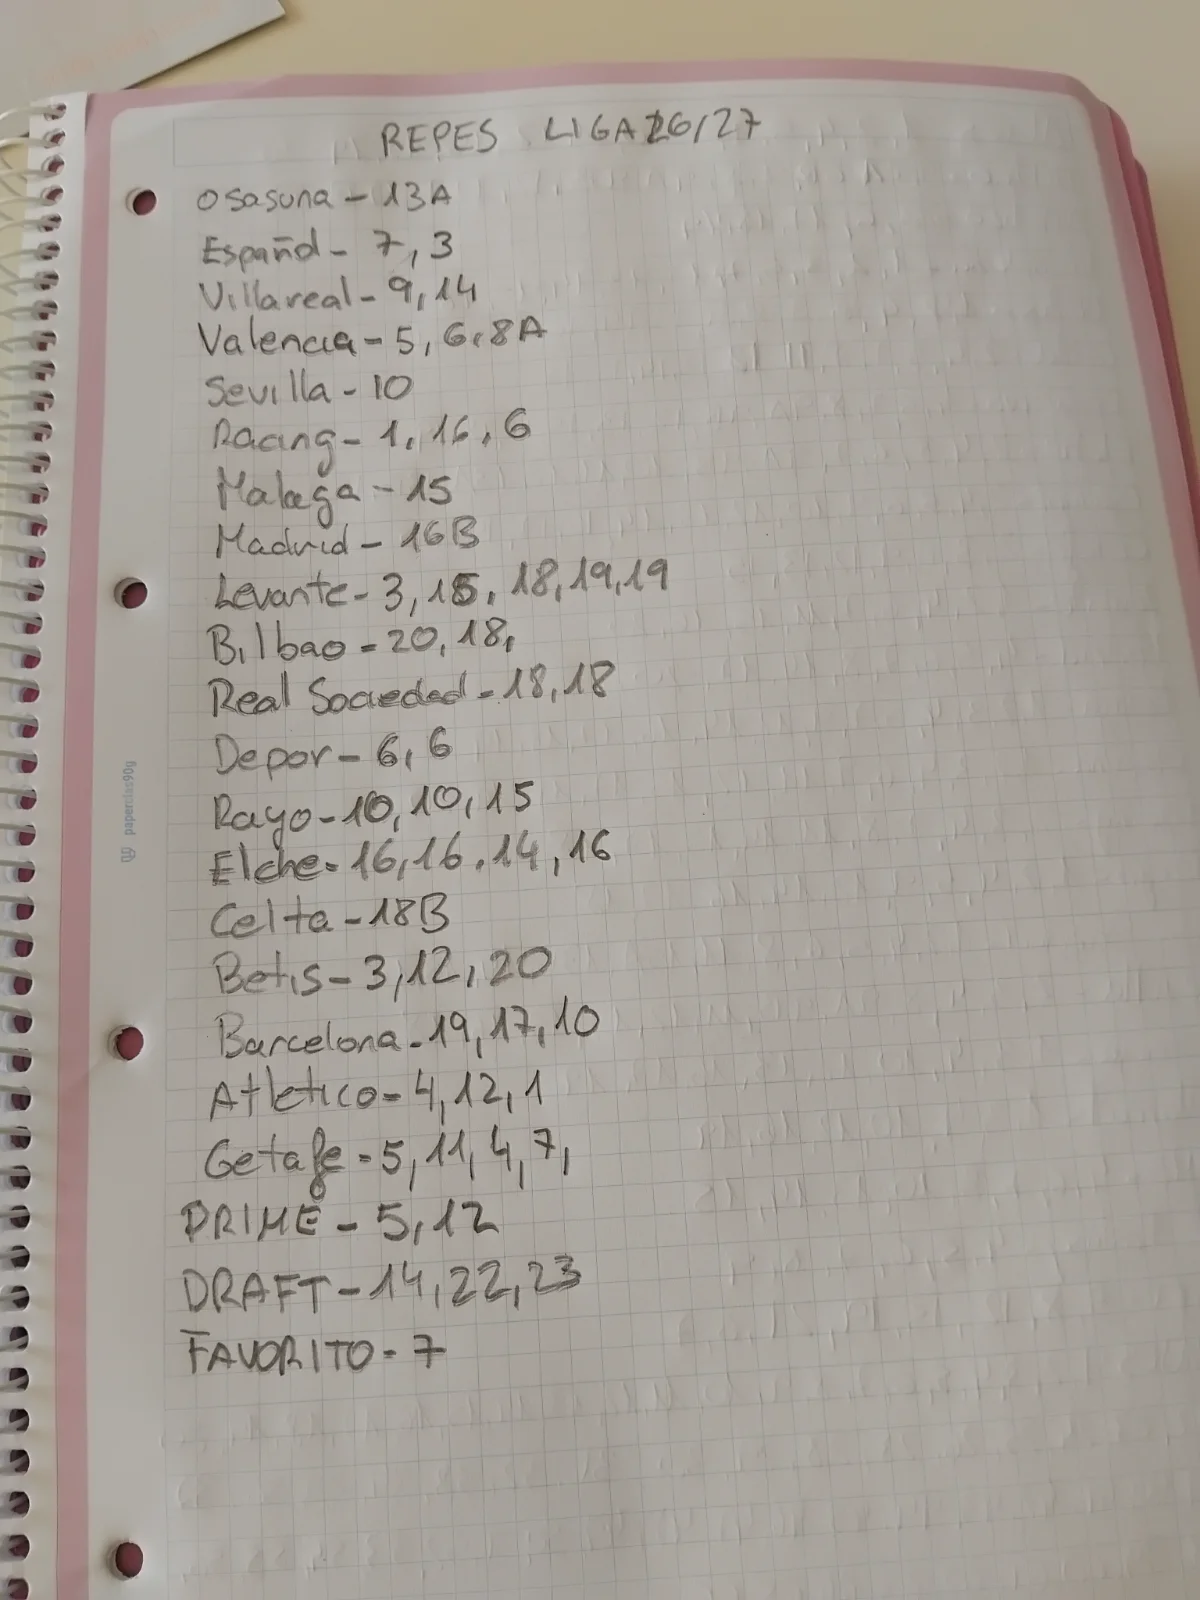 REPES LIGA 26/27
Osasuna - 13A
Español - 7, 3
Villareal - 9, 14
Valencia - 5, 6, 8A
Sevilla - 10
Racing - 1, 16, 6
Malaga - 15
Madrid - 16B
Levante - 3, 15, 18, 19, 19
Bilbao - 20, 18,
Real Sociedad - 18, 18
Depor - 6, 6
Rayo - 10, 10, 15
Elche - 16, 16, 14, 16
Celta - 18B
Betis - 3, 12, 20
Barcelona - 19, 17, 10
Atletico - 4, 12, 1
Getafe - 5, 11, 4, 7,
PRIME - 5, 12
DRAFT - 14, 22, 23
FAVORITO - 7
paperclas90g